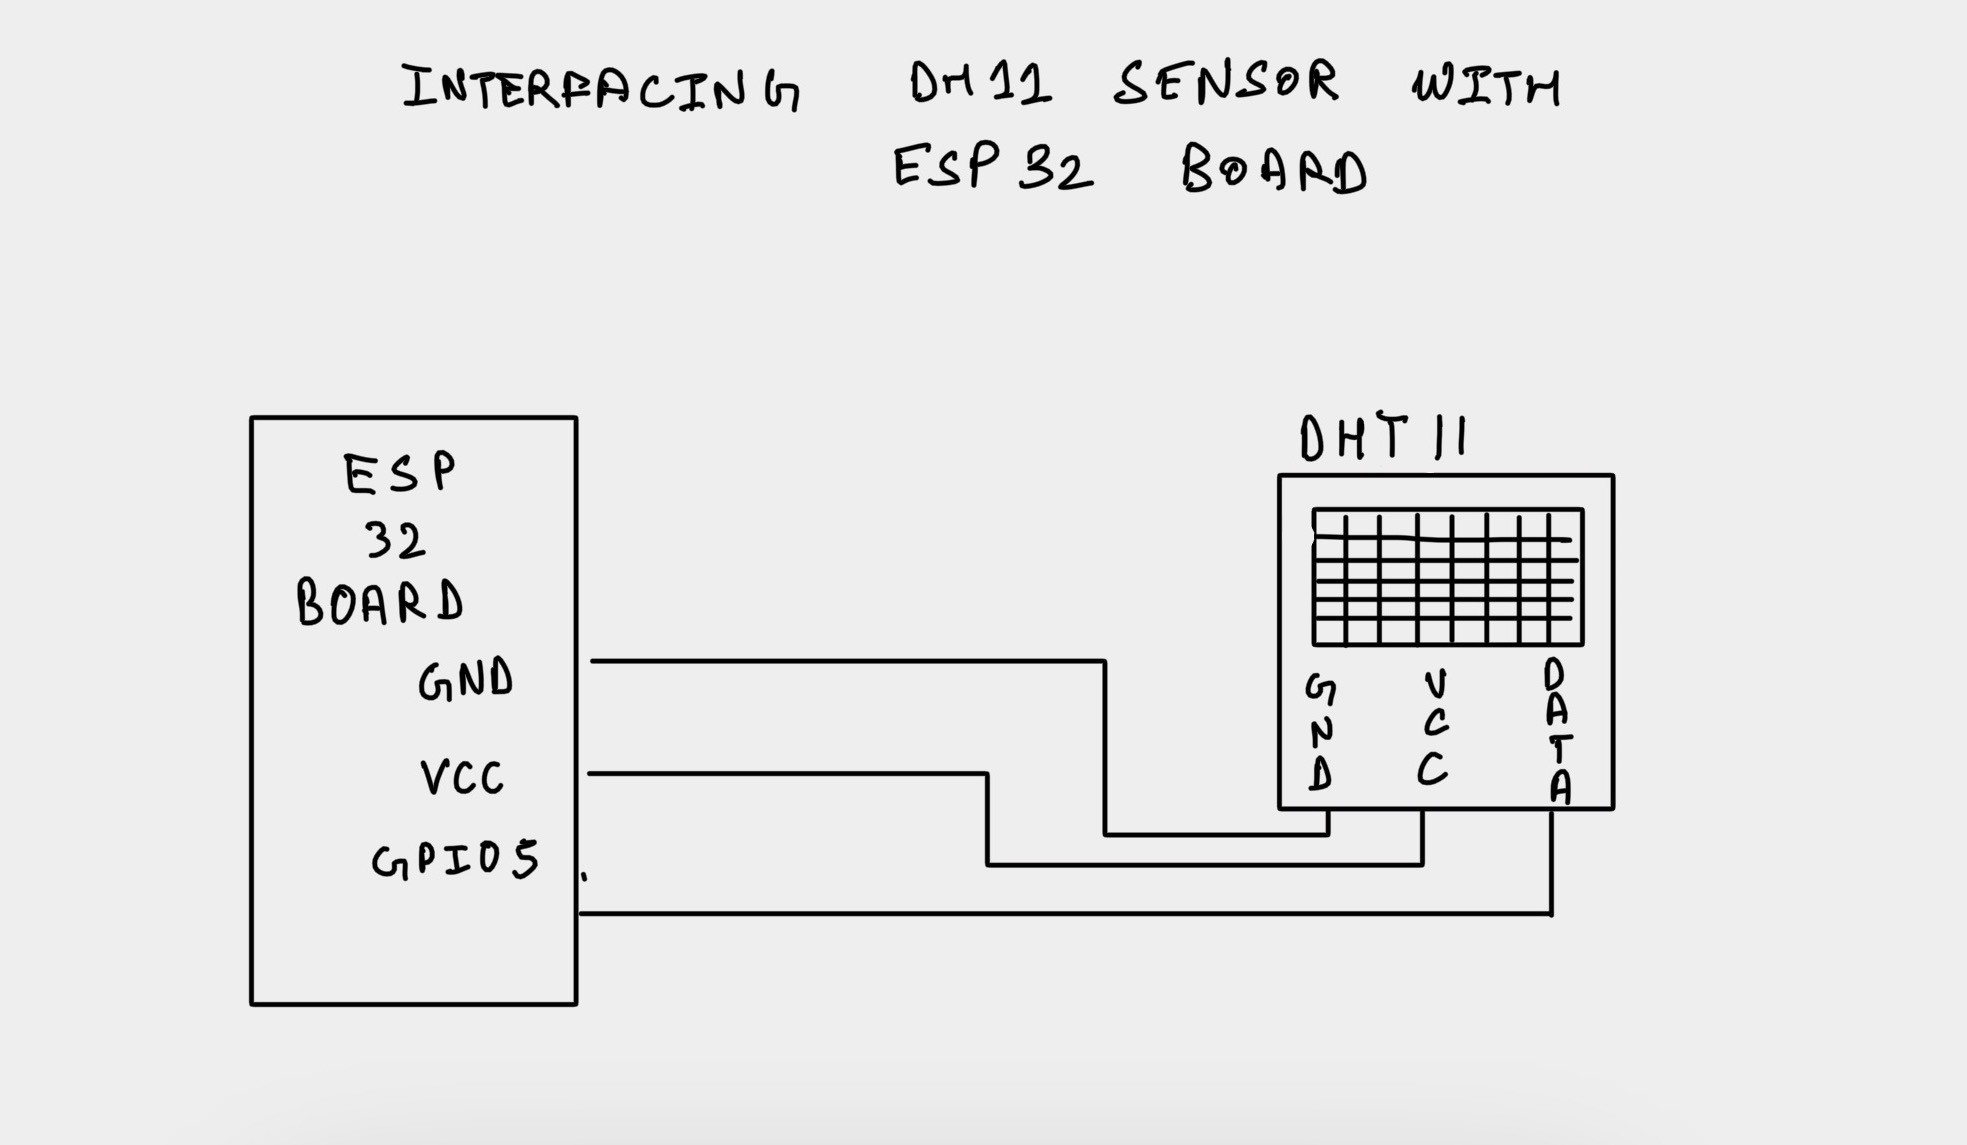 INTERFACING DH11 SENSOR WITH
ESP32 BOARD
ESP
32
BOARD
GND
VCC
GPIO5
DHT11
GND
VCC
DATA